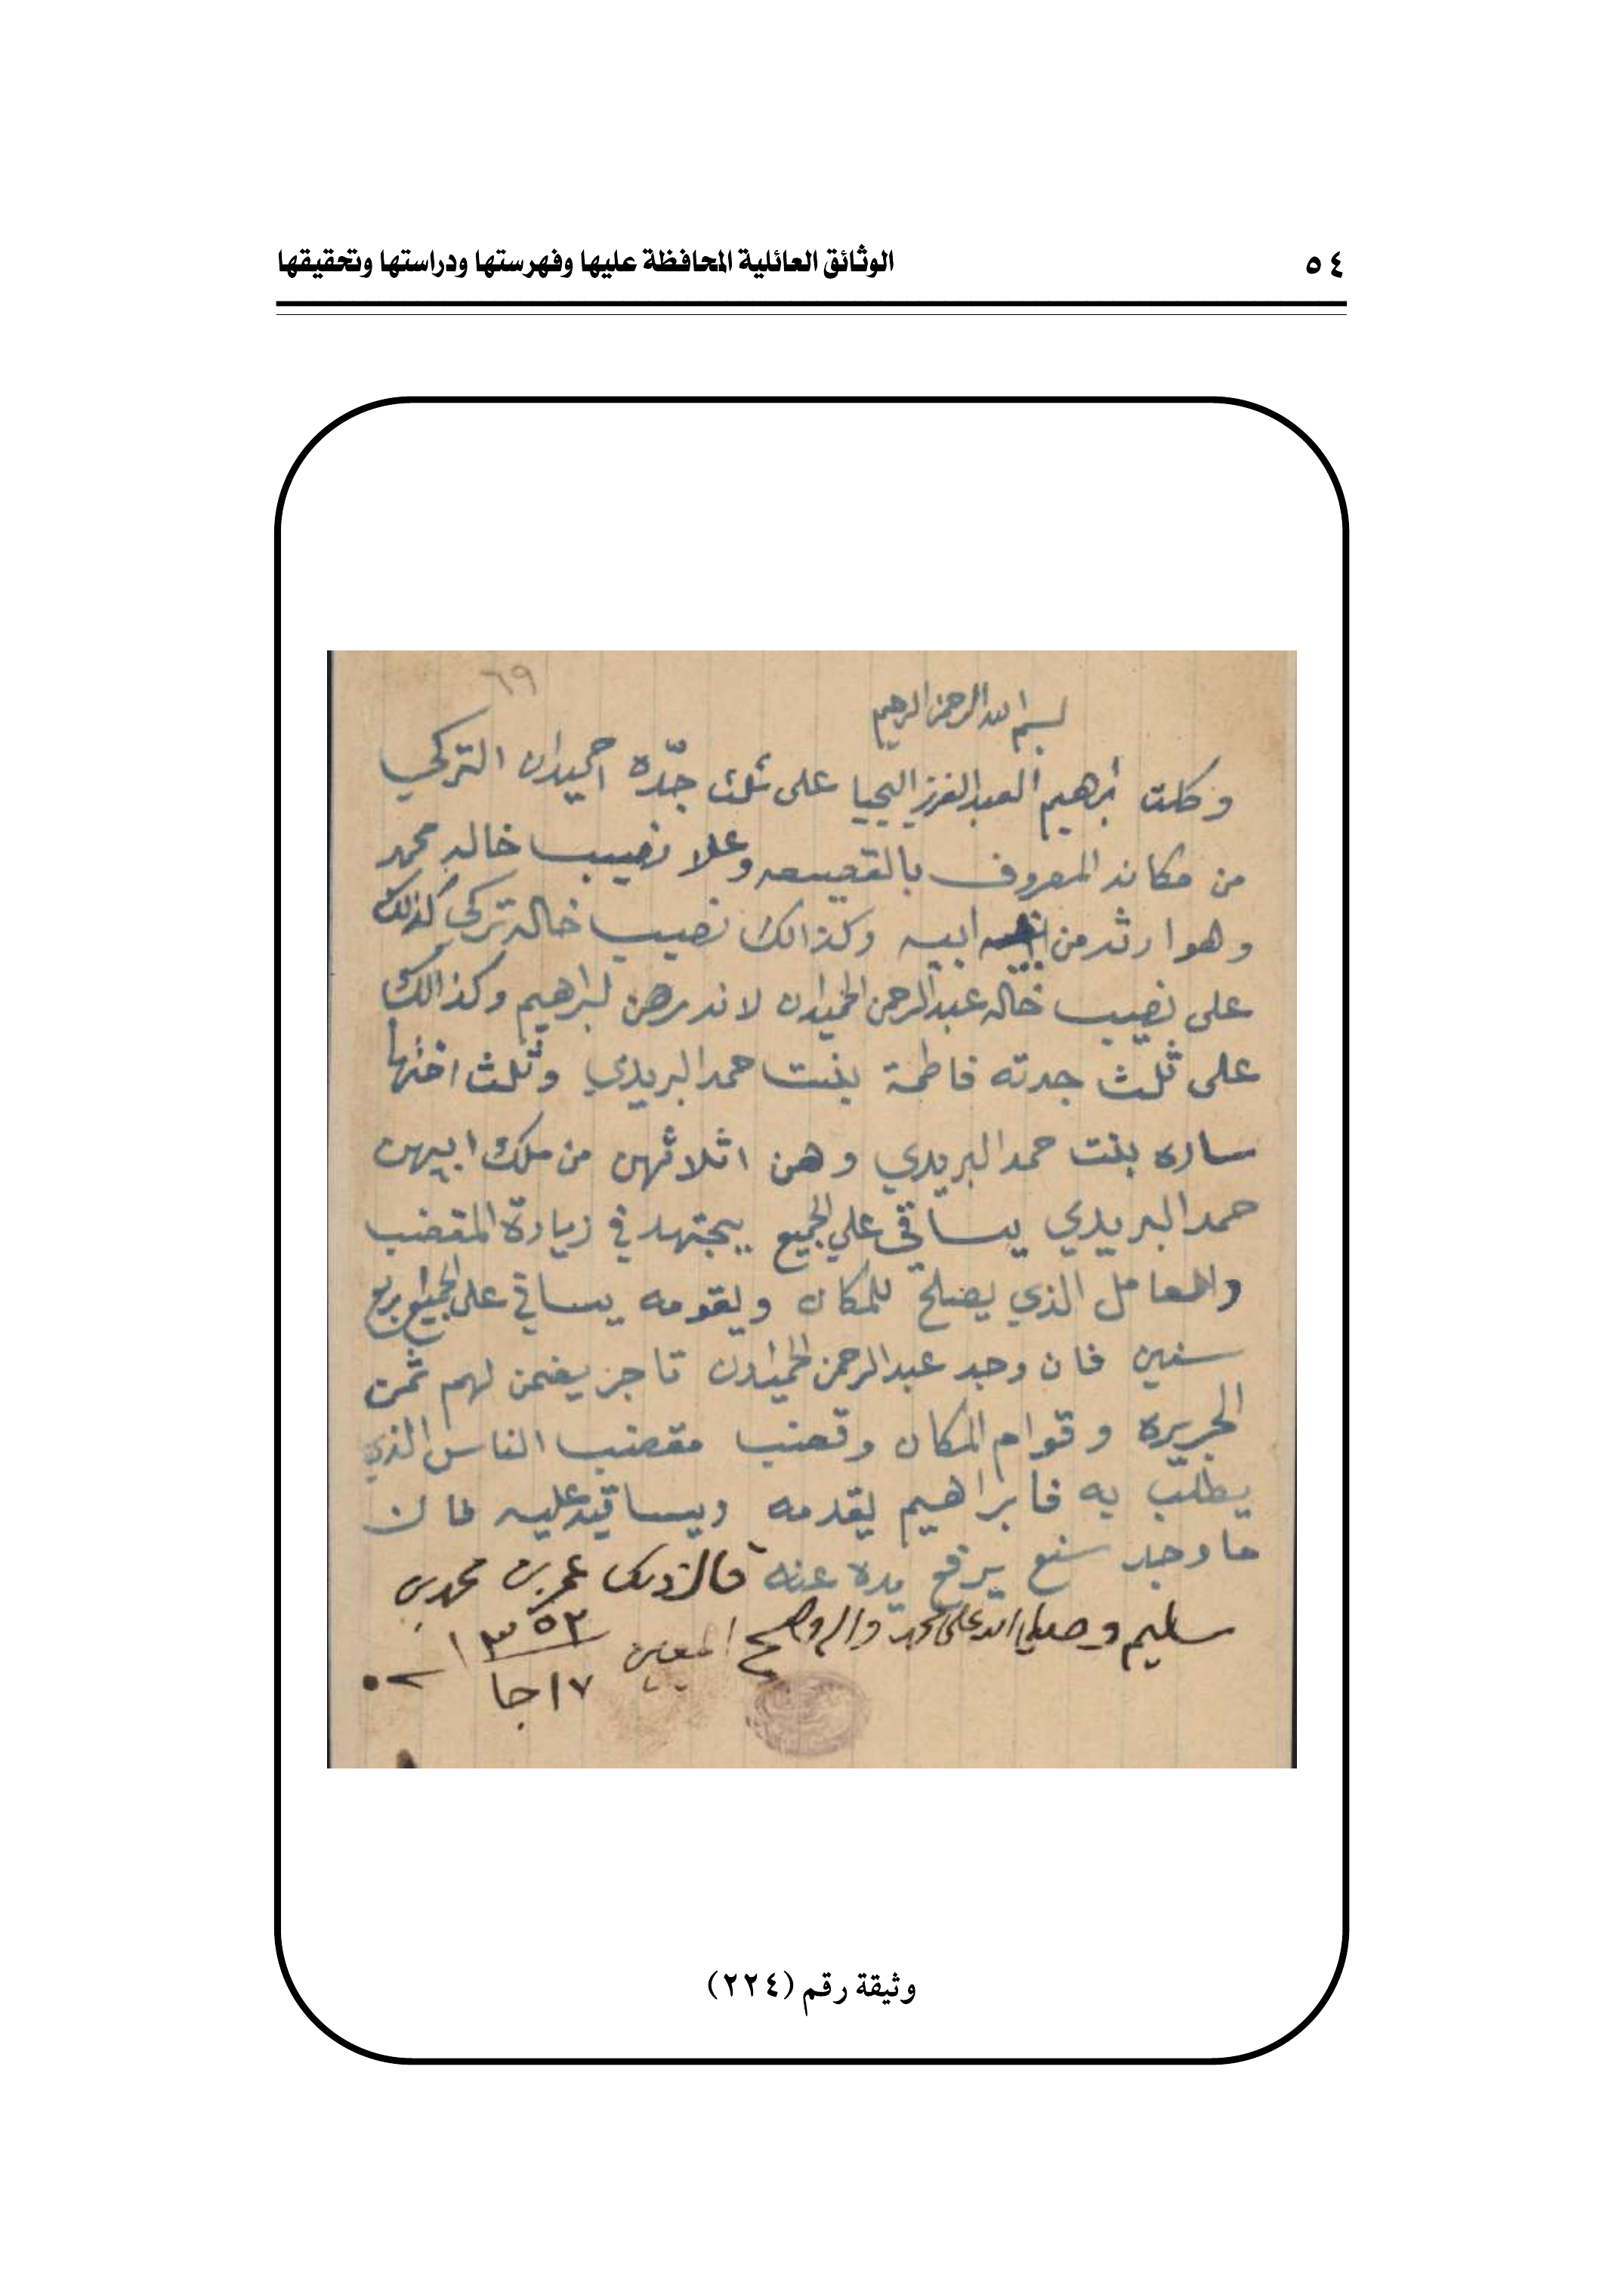 ٥٤
الوثائق العائلية المحافظة عليها وفهرستها ودراستها وتحقيقها
٦٩
بسم الله الرحمن الرحيم
وكلت ابرهيم العبدالعزيز اليحيا على ثلث جدّه احميدان التركي
من مكانه المعروف بالقصيعه وعلا نصيب خاله محمد
وهو ارثه من ابيه وكذالك نصيب خاله تركي كذلك
على نصيب خاله عبدالرحمن الحميدان لانه رهن لبراهيم وكذالك
على ثلث جدته فاطمة بنت حمد البريدي وثلث اختها
ساره بنت حمد البريدي وهن اثلاثهن من ملك ابيهن
حمد البريدي يساقي على الجميع يجتهد في زيادة المقضب
والمعامل الذي يصلح للمكان ويقومه يساقي على الجميع اربع
سنين فان وجد عبدالرحمن الحميدان تاجز يضمن لهم ثمن
الجريره وقوام المكان وقضب مقضب الناس الذي
يطلب به فابراهيم يقدمه ويساقيه عليه فان
ما وجد سنع يرفع يده عنه قال ذلك عمر بن محمد بن
سليم وصلى الله على محمد واله وصحبه اجمعين ١٣٥٢
١٧ جا
وثيقة رقم (٢٢٤)